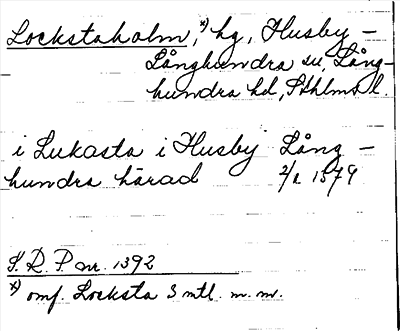 Lockstaholm,*) hg, Husby-
Långhundra sn, Lång-
hundra hd, Sthlms l.
i Lukasta i Husby Lång-
hundra härad 2/2 1379
S. R. P. nr. 1392
*) omf. Locksta 3 mtl. m. m.